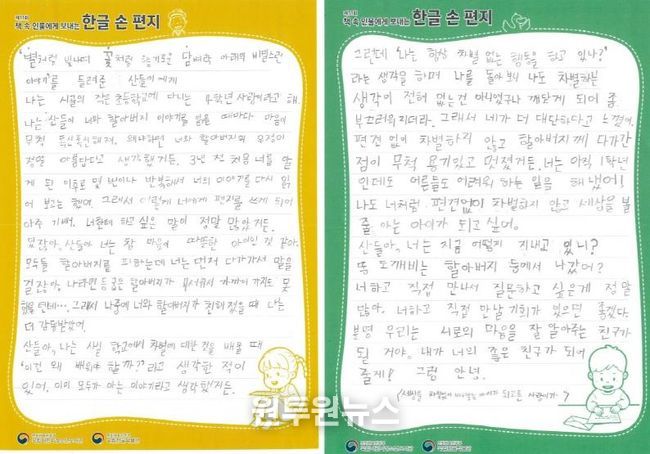 제11회
책 속 인물에게 보내는 한글 손 편지
별처럼 빛나며 꽃처럼 향기로운 담벼락 아래의 비밀스런
이야기를 들려준 산들이에게
나는 시골의 작은 초등학교에 다니는 4학년 사랑이라고 해.
나는 산들이 너와 할아버지 이야기를 읽을 때마다 마음이
무척 왜냐하면 너와 할아버지의 우정이
정말 아름답다고 생각했거든. 3년 전 처음 너를 알
게 된 이후로 몇 번이나 반복해서 너의 이야기를 다시 읽
어 보고는 했어. 그래서 이렇게 너에게 편지를 쓰게 되어
아주 기뻐. 너한테 하고 싶은 말이 정말 많았거든.
있잖아, 산들아 너는 참 마음이 따뜻한 아이인 것 같아.
모두들 할아버지를 피하는데 너는 먼저 다가가서 말을
걸잖아. 나라면 등굽은 할아버지가 무서워서 가까이 가지도 못
했을 텐데… 그래서 나중에 너와 할아버지가 친해졌을 때 나는
더 감동받았어.
산들아, 나는 사실 학교에서 차별에 대한 것을 배울 때
'이건 왜 배워야 할까?'라고 생각한 적이
있어. 이미 모두가 아는 이야기라고 생각했거든.
제11회
책 속 인물에게 보내는 한글 손 편지
그런데 '나는 항상 차별 없는 행동을 하고 있나?'
라는 생각을 하며 나를 돌아보니 나도 차별하는
생각이 전혀 없는건 아니었구나 깨닫게 되어 좀
부끄러워지더라. 그래서 네가 더 대단하다고 느꼈어.
편견 없이 차별하지 않고 할아버지께 다가간
점이 무척 용기있고 멋졌거든. 너는 아직 1학년
인데도 어른들도 어려워 하는 일을 해냈어!
나도 너처럼 편견없이 차별하지 않고 세상을 볼
줄 아는 아이가 되고 싶어.
산들아, 너는 지금 어떻게 지내고 있니?
또 도깨비는 할아버지 등에서 나갔어?
너하고 직접 만나서 질문하고 싶은게 정말
많아. 너하고 직접 만날 기회가 있으면 좋겠다.
분명 우리는 서로의 마음을 잘 알아주는 친구가
될 거야. 내가 너의 좋은 친구가 되어
줄게! 그럼 안녕.
원투원뉴스